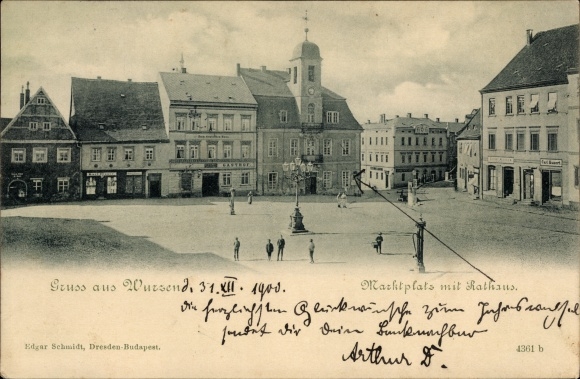 Gruss aus Wurzen
d. 31. XII. 1900.
Marktplatz mit Rathaus.
die herzlichsten Glückwünsche zum Jahreswechsel
sendet dir dein Banknachbar
Arthur D.
Edgar Schmidt, Dresden-Budapest.
4361 b